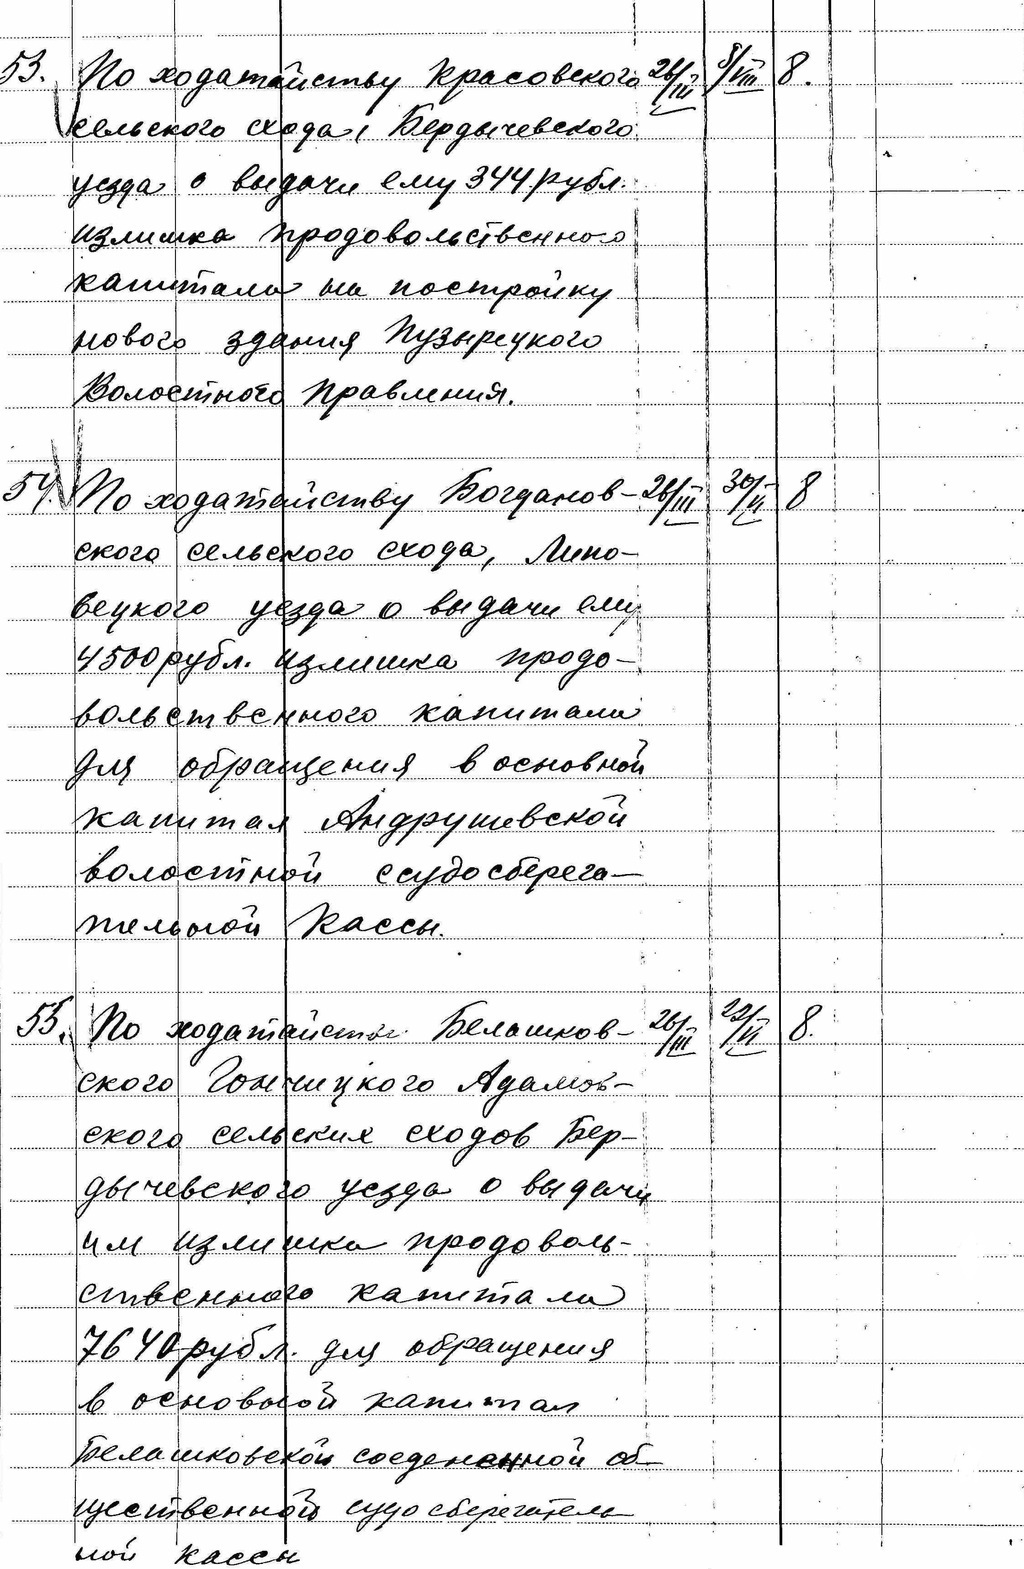 53. По ходатайству Красовского 26/III 8/VIII 8.
сельского схода, Бердычевского
уезда о выдачи ему 344 рубл.
излишка продовольственного
капитала на постройку
нового здания Пузырецкого
Волостного Правления.
54. По ходатайству Богданов- 26/III 30/VI 8
ского сельского схода, Липо-
вецкого уезда о выдачи ему
4500 рубл. излишка продо-
вольственного капитала
для обращения в основной
капитал Андрушевской
волостной ссудосберега-
тельной Кассы.
55. По ходатайству Белашков- 26/III 8.
ского Гончицкого Адамов-
ского сельских сходов Бер-
дычевского уезда о выдачи
им излишка продоволь-
ственного капитала
7640 рубл. для обращения
в основной капитал
Белашковской соедененной об-
щественной судосберегатель
ной кассы